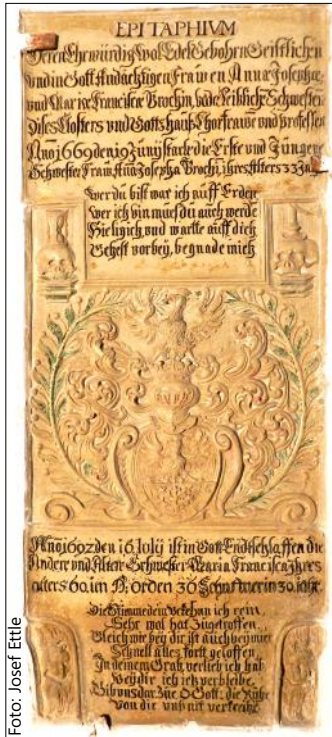 EPITAPHIVM
Deren Ehrwürdig Wol Edel Gebohrn Geistlichen
vnd in Gott Andächtigen Frawen Annæ Josephæ
vnd Mariæ Franciscæ Brochin, bade Leibliche Schwester
dises Closters vnd Gottshauß Chorfrawe vnd Professen
Año 1669 den 19 Junij starbe die Erste vnd Jüngere
Schwester Fraw Aña Josepha Brochi, ihres Alters 33 Jar
Wer du bist war ich auff Erden
wer ich bin muesdu auch werde
Hie lig ich vnd wartte auff dich
Gehest vorbey, begnade mich
Año 1692 den 16 Iolij ist in Gott Endtschlaffen die
Andere vnd Älter Schwester Maria Francisca ihres
alters 60. im Orden 36 war in 30 Jahr.
Die Stimme dein Bekhan ich rein
Sehr wol hat Zugetroffen
Gleich wie bey dir ist auch bey mier
Schnell alles fortt geloffen
In deinem Grab verlieb ich hab
Bey dir ich iez verbleibe
Gib vns dar Zue O Gott: die Rühe
Von die vnß nit vertreibe
Foto: Josef Ettle